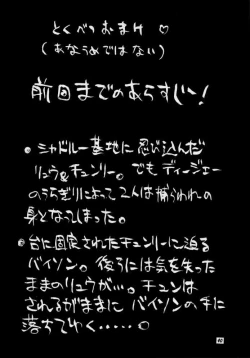 とくべつおまけ♡
(あなうめではない)
前回までのあらすじ〜!
●シャドルー基地に忍び込んだ
リュウ&チュンリー。でもディージェー
のうらぎりによって2人は捕らわれの
身となってしまった。
●台に固定されたチュンリーに迫る
バイソン。後ろには気を失った
ままのリュウが…。チュンは
されるがままに バイソンの手に
落ちてゆく……。